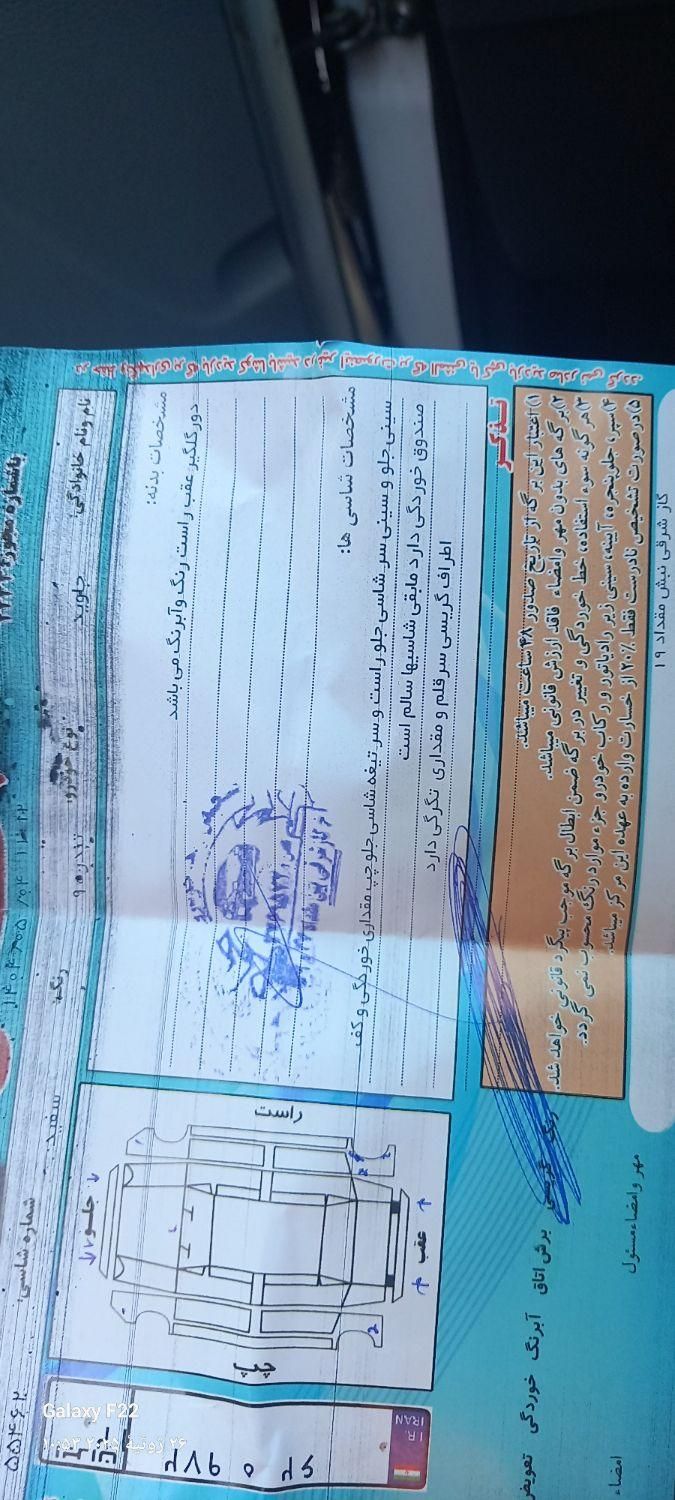 نام ونام خانوادگی:
جاوید
نوع خودرو:
تندر ۹۰
رنگ:
سفید
شماره شاسی:
مشخصات بدنه:
دورگلگیر عقب راست رنگ وآبرنگ می باشد
مشخصات شاسی ها:
سینی جلو و سینی سر شاسی جلو راست و سر تیغه شاسی جلو چپ مقداری خوردگی و کف
صندوق خوردگی دارد مابقی شاسیها سالم است
اطراف گریسی سرقلم و مقداری تگرگی دارد
راست
جلو
عقب
چپ
I.R.
IRAN
تذکر
۱) اعتبار این برگه از تاریخ صدور ۴۸ ساعت میباشد.
۲) برگه های بدون مهر وامضاء فاقد ارزش قانونی میباشد.
۳) هرگونه سوء استفاده، خط خوردگی و تغییر در برگه ضمن ابطال برگه موجب پیگرد قانونی خواهد شد.
۴) سپر، جلو پنجره، آیینه، سینی زیر رادیاتور ور کاب خودرو جزء موارد رنگ محسوب نمی گردد.
۵) در صورت تشخیص نادرست فقط ۲۰٪ از خسارت وارده به عهده این مرکز میباشد.
رنگ گریسی برش اتاق آبرنگ خوردگی تعویض
مهر وامضاء مسئول
امضاء
گاز شرقی نبش مقداد ۱۹
Galaxy F22
۲۶ ژوئیهٔ ۲۰۲۵ ۱۰:۵۳